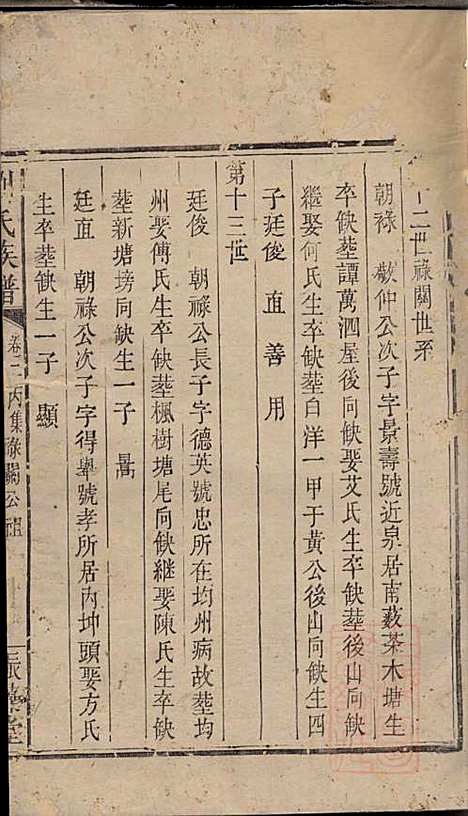 十二世祿關世系
朝祿　敬仲公次子字景壽號近泉居南薮茶木塘生
卒缺塟譚萬泗屋後向缺娶艾氏生卒缺塟後山向缺
繼娶何氏生卒缺塟白洋一甲于黃公後山向缺生四
子廷俊　直　善　用
第十三世
廷俊　朝祿公長子字德英號忠所在均州病故塟均
州娶傅氏生卒缺塟楓樹塘尾向缺繼娶陳氏生卒缺
塟新塘塝向缺生一子　暠
廷直　朝祿公次子字得舉號孝所居內坤頭娶方氏
生卒塟缺生一子　顯
氏族譜
卷二丙集祿關公
堂